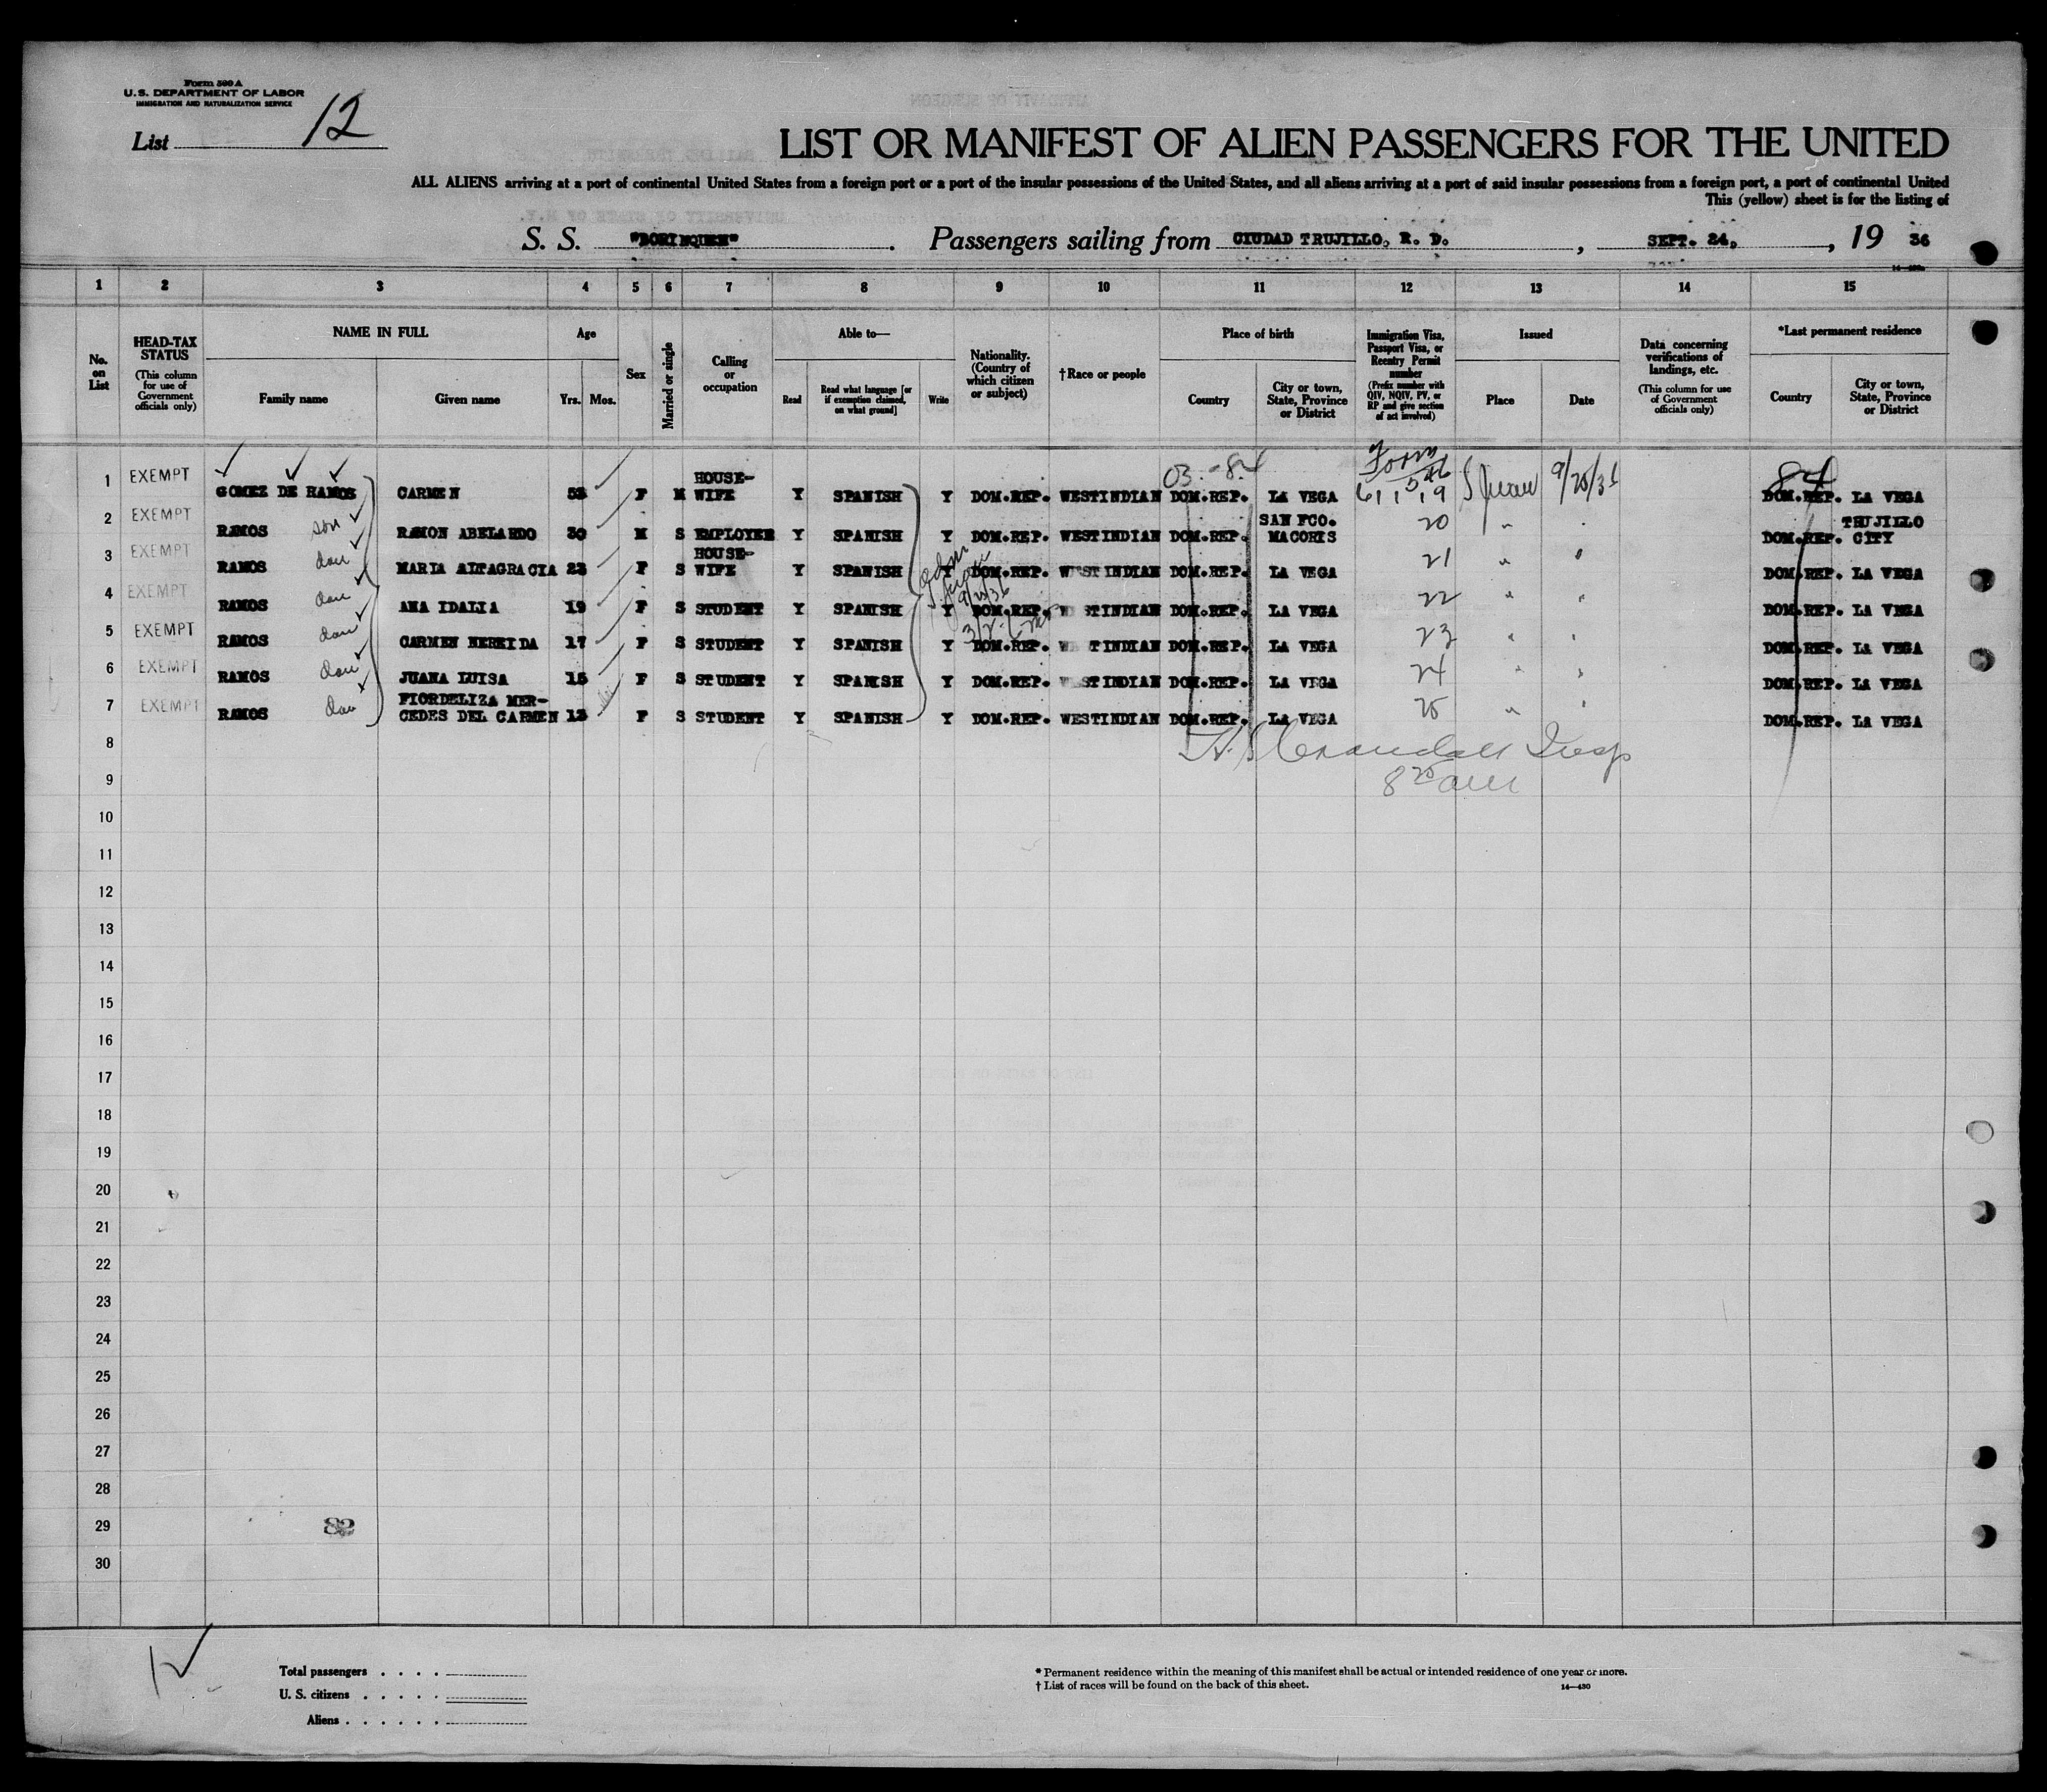 Form 500 A
U.S. DEPARTMENT OF LABOR
IMMIGRATION AND NATURALIZATION SERVICE
List 12
LIST OR MANIFEST OF ALIEN PASSENGERS FOR THE UNITED
ALL ALIENS arriving at a port of continental United States from a foreign port or a port of the insular possessions of the United States, and all aliens arriving at a port of said insular possessions from a foreign port, a port of continental United
This (yellow) sheet is for the listing of
S. S. "BORINQUEN". Passengers sailing from CIUDAD TRUJILLO, R. D., SEPT. 24, 19 36
1 2 3 4 5 6 7 8 9 10 11 12 13 14 15
No. on List
HEAD-TAX STATUS (This column for use of Government officials only)
NAME IN FULL Family name Given name
Age Yrs. Mos.
Sex
Married or single
Calling or occupation
Able to— Read Read what language [or if exemption claimed, on what ground] Write
Nationality. (Country of which citizen or subject)
†Race or people
Place of birth Country City or town, State, Province or District
Immigration Visa, Passport Visa, or Reentry Permit number (Prefix number with QIV, NQIV, PV, or RP and give section of act involved)
Issued Place Date
Data concerning verifications of landings, etc. (This column for use of Government officials only)
*Last permanent residence Country City or town, State, Province or District
03 - 84 Form 546 84
1 EXEMPT GOMEZ DE RAMOS CARMEN 53 F M HOUSE-WIFE Y SPANISH Y DOM.REP. WESTINDIAN DOM.REP. LA VEGA 611,519 S Juan 9/28/36 DOM.REP. LA VEGA
2 EXEMPT RAMOS son RAMON ABELARDO 30 M S EMPLOYEE Y SPANISH Y DOM.REP. WESTINDIAN DOM.REP. SAN FCO. MACORIS 20 " " DOM.REP. TRUJILLO CITY
3 EXEMPT RAMOS dau MARIA ALTAGRACIA 23 F S HOUSE-WIFE Y SPANISH Y DOM.REP. WESTINDIAN DOM.REP. LA VEGA 21 " " DOM.REP. LA VEGA
4 EXEMPT RAMOS dau ANA IDALIA 19 F S STUDENT Y SPANISH Y DOM.REP. WESTINDIAN DOM.REP. LA VEGA 22 " " DOM.REP. LA VEGA
5 EXEMPT RAMOS dau CARMEN NEREIDA 17 F S STUDENT Y SPANISH Y DOM.REP. WESTINDIAN DOM.REP. LA VEGA 23 " " DOM.REP. LA VEGA
6 EXEMPT RAMOS dau JUANA LUISA 15 F S STUDENT Y SPANISH Y DOM.REP. WESTINDIAN DOM.REP. LA VEGA 24 " " DOM.REP. LA VEGA
7 EXEMPT RAMOS dau FIORDELIZA MER-CEDES DEL CARMEN 13 F S STUDENT Y SPANISH Y DOM.REP. WESTINDIAN DOM.REP. LA VEGA 25 " " DOM.REP. LA VEGA
8 Crandall Insp
9 8 20 am
10
11
12
13
14
15
16
17
18
19
20
21
22
23
24
25
26
27
28
29 82
30
12
Total passengers . . . .
U. S. citizens . . . . .
Aliens . . . . . .
* Permanent residence within the meaning of this manifest shall be actual or intended residence of one year or more.
† List of races will be found on the back of this sheet. 14—430